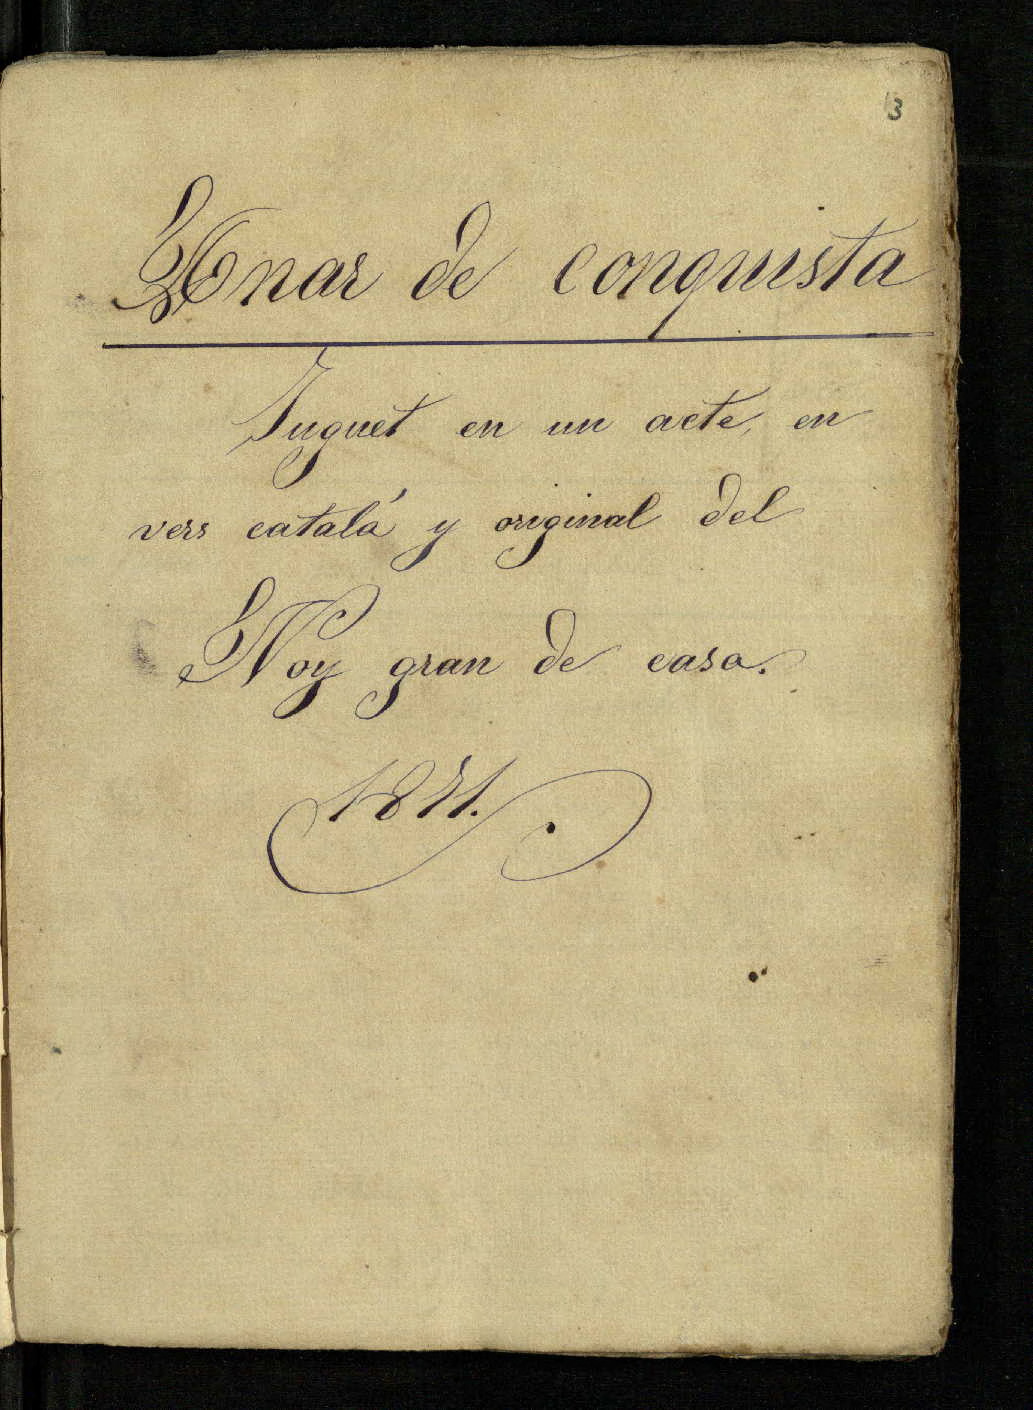 3
Anar de conquista
Juguet en un acte, en
vers catalá y original del
Noy gran de casa.
1871.